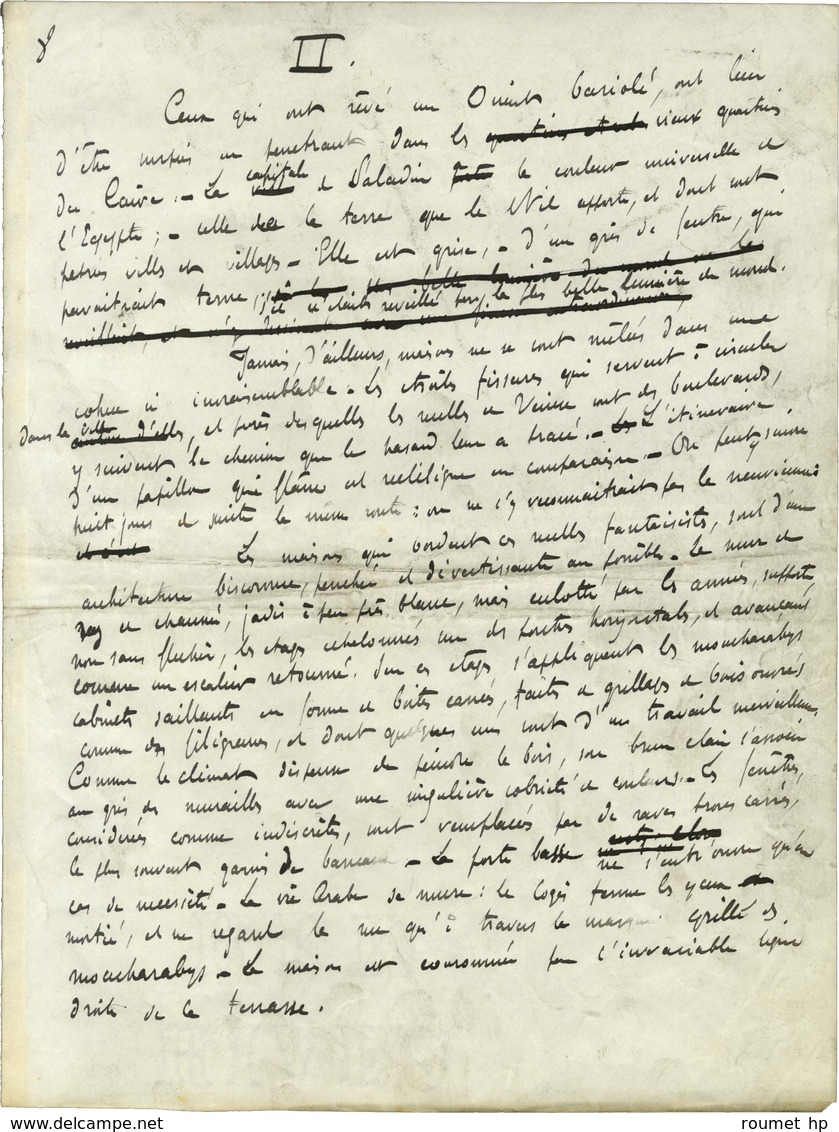 8
II.
Ceux qui ont rêvé un Orient bariolé, ont lieu
d'être surpris en penetrant dans les vieux quartiers
du Caire. - La capitale de Saladin a la couleur universelle de
l'Egypte; - celle de la terre que le Nil apporte, et dont sont
petries villes et villages - Elle est grise, - d'un gris de feutre, qui
paraitrait terne, s'il n'était reveillé par la plus belle lumière du monde.
Jamais, d'ailleurs, maisons ne se sont mêlées dans une
cohue si invraisemblable - Les étroites fissures qui servent à circuler
dans la ville, et près desquelles les ruelles de Venise sont des boulevards,
y suivent le chemin que le hasard leur a tracé. - L'itinéraire
d'un papillon qui flâne est rectiligne en comparaison - On peut y suivre
huit jours de suite la même route: on ne s'y reconnaitrait pas le neuvième.
Les maisons qui bordent ces ruelles fantaisistes, sont d'une
architecture biscornue, penchée et divertissante au possible - Le mur de
de chaumé, jadis à peu près blanc, mais culotté par les années, supporte,
non sans flechir, les étages echelonnés sur des poutres horizontales, et avançant
comme un escalier retourné. Sur ces étages s'appliquent les moucharabys
cabinets saillants en forme de boites carrées, faits de grillages de bois ouvrés
comme des filigranes, et dont quelques uns sont d'un travail merveilleux.
Comme le climat dispense de peindre le bois, son brun clair s'associe
au gris des murailles avec une singulière sobrieté de couleurs. - Les fenêtres,
considerées comme indiscrètes, sont remplacées par de rares trous carrés,
le plus souvent garnis de barreaux - La porte basse ne s'entr'ouvre qu'en
cas de necessité - La vie Arabe se mure: le logis ferme les yeux à
moitié, et ne regarde la rue qu'à travers le masque grillé des
moucharabys - La maison est couronnée par l'invariable ligne
droite de la terrasse.
roumet hp